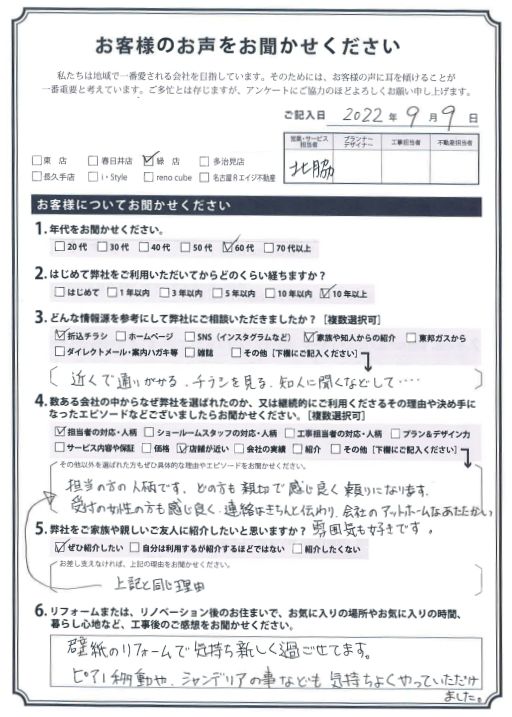 お客様のお声をお聞かせください
私たちは地域で一番愛される会社を目指しています。そのためには、お客様の声に耳を傾けることが
一番重要と考えています。ご多忙とは存じますが、アンケートにご協力のほどよろしくお願い申し上げます。
ご記入日 2022 年 9 月 9 日
営業・サービス担当者 プランナーデザイナー 工事担当者 不動産担当者
北脇
□東 店 □春日井店 ☑緑 店 □多治見店
□長久手店 □i・Style □reno cube □名古屋Rエイジ不動産
お客様についてお聞かせください
1.年代をお聞かせください。
□20代 □30代 □40代 □50代 ☑60代 □70代以上
2.はじめて弊社をご利用いただいてからどのくらい経ちますか？
□はじめて □1年以内 □3年以内 □5年以内 □10年以内 ☑10年以上
3.どんな情報源を参考にして弊社にご相談いただきましたか？［複数選択可］
☑折込チラシ □ホームページ □SNS（インスタグラムなど） ☑家族や知人からの紹介 □東邦ガスから
□ダイレクトメール・案内ハガキ等 □雑誌 □その他［下欄にご記入ください］
近くで通りかかる、チラシを見る、知人に聞くなどして‥‥
4.数ある会社の中からなぜ弊社を選ばれたのか、又は継続的にご利用くださるその理由や決め手に
なったエピソードなどございましたらお聞かせください。［複数選択可］
☑担当者の対応・人柄 □ショールームスタッフの対応・人柄 □工事担当者の対応・人柄 □プラン＆デザイン力
□サービス内容や保証 □価格 ☑店舗が近い □会社の実績 □紹介 □その他［下欄にご記入ください］
その他以外を選ばれた方もぜひ具体的な理由やエピソードをお聞かせください。
担当の方の人柄です、どの方も親切で感じ良く頼りになります。
受付の女性の方も感じ良く、連絡はきちんと伝わり、会社のアットホームなあたたかい
雰囲気も好きです。
5.弊社をご家族や親しいご友人に紹介したいと思いますか？
☑ぜひ紹介したい □自分は利用するが紹介するほどではない □紹介したくない
お差し支えなければ、上記の理由をお聞かせください。
上記と同じ理由
6.リフォームまたは、リノベーション後のお住まいで、お気に入りの場所やお気に入りの時間、
暮らし心地など、工事後のご感想をお聞かせください。
壁紙のリフォームで気持ち新しく過ごせてます。
ピアノ移動や、シャンデリアの事なども気持ちよくやっていただけ
ました。